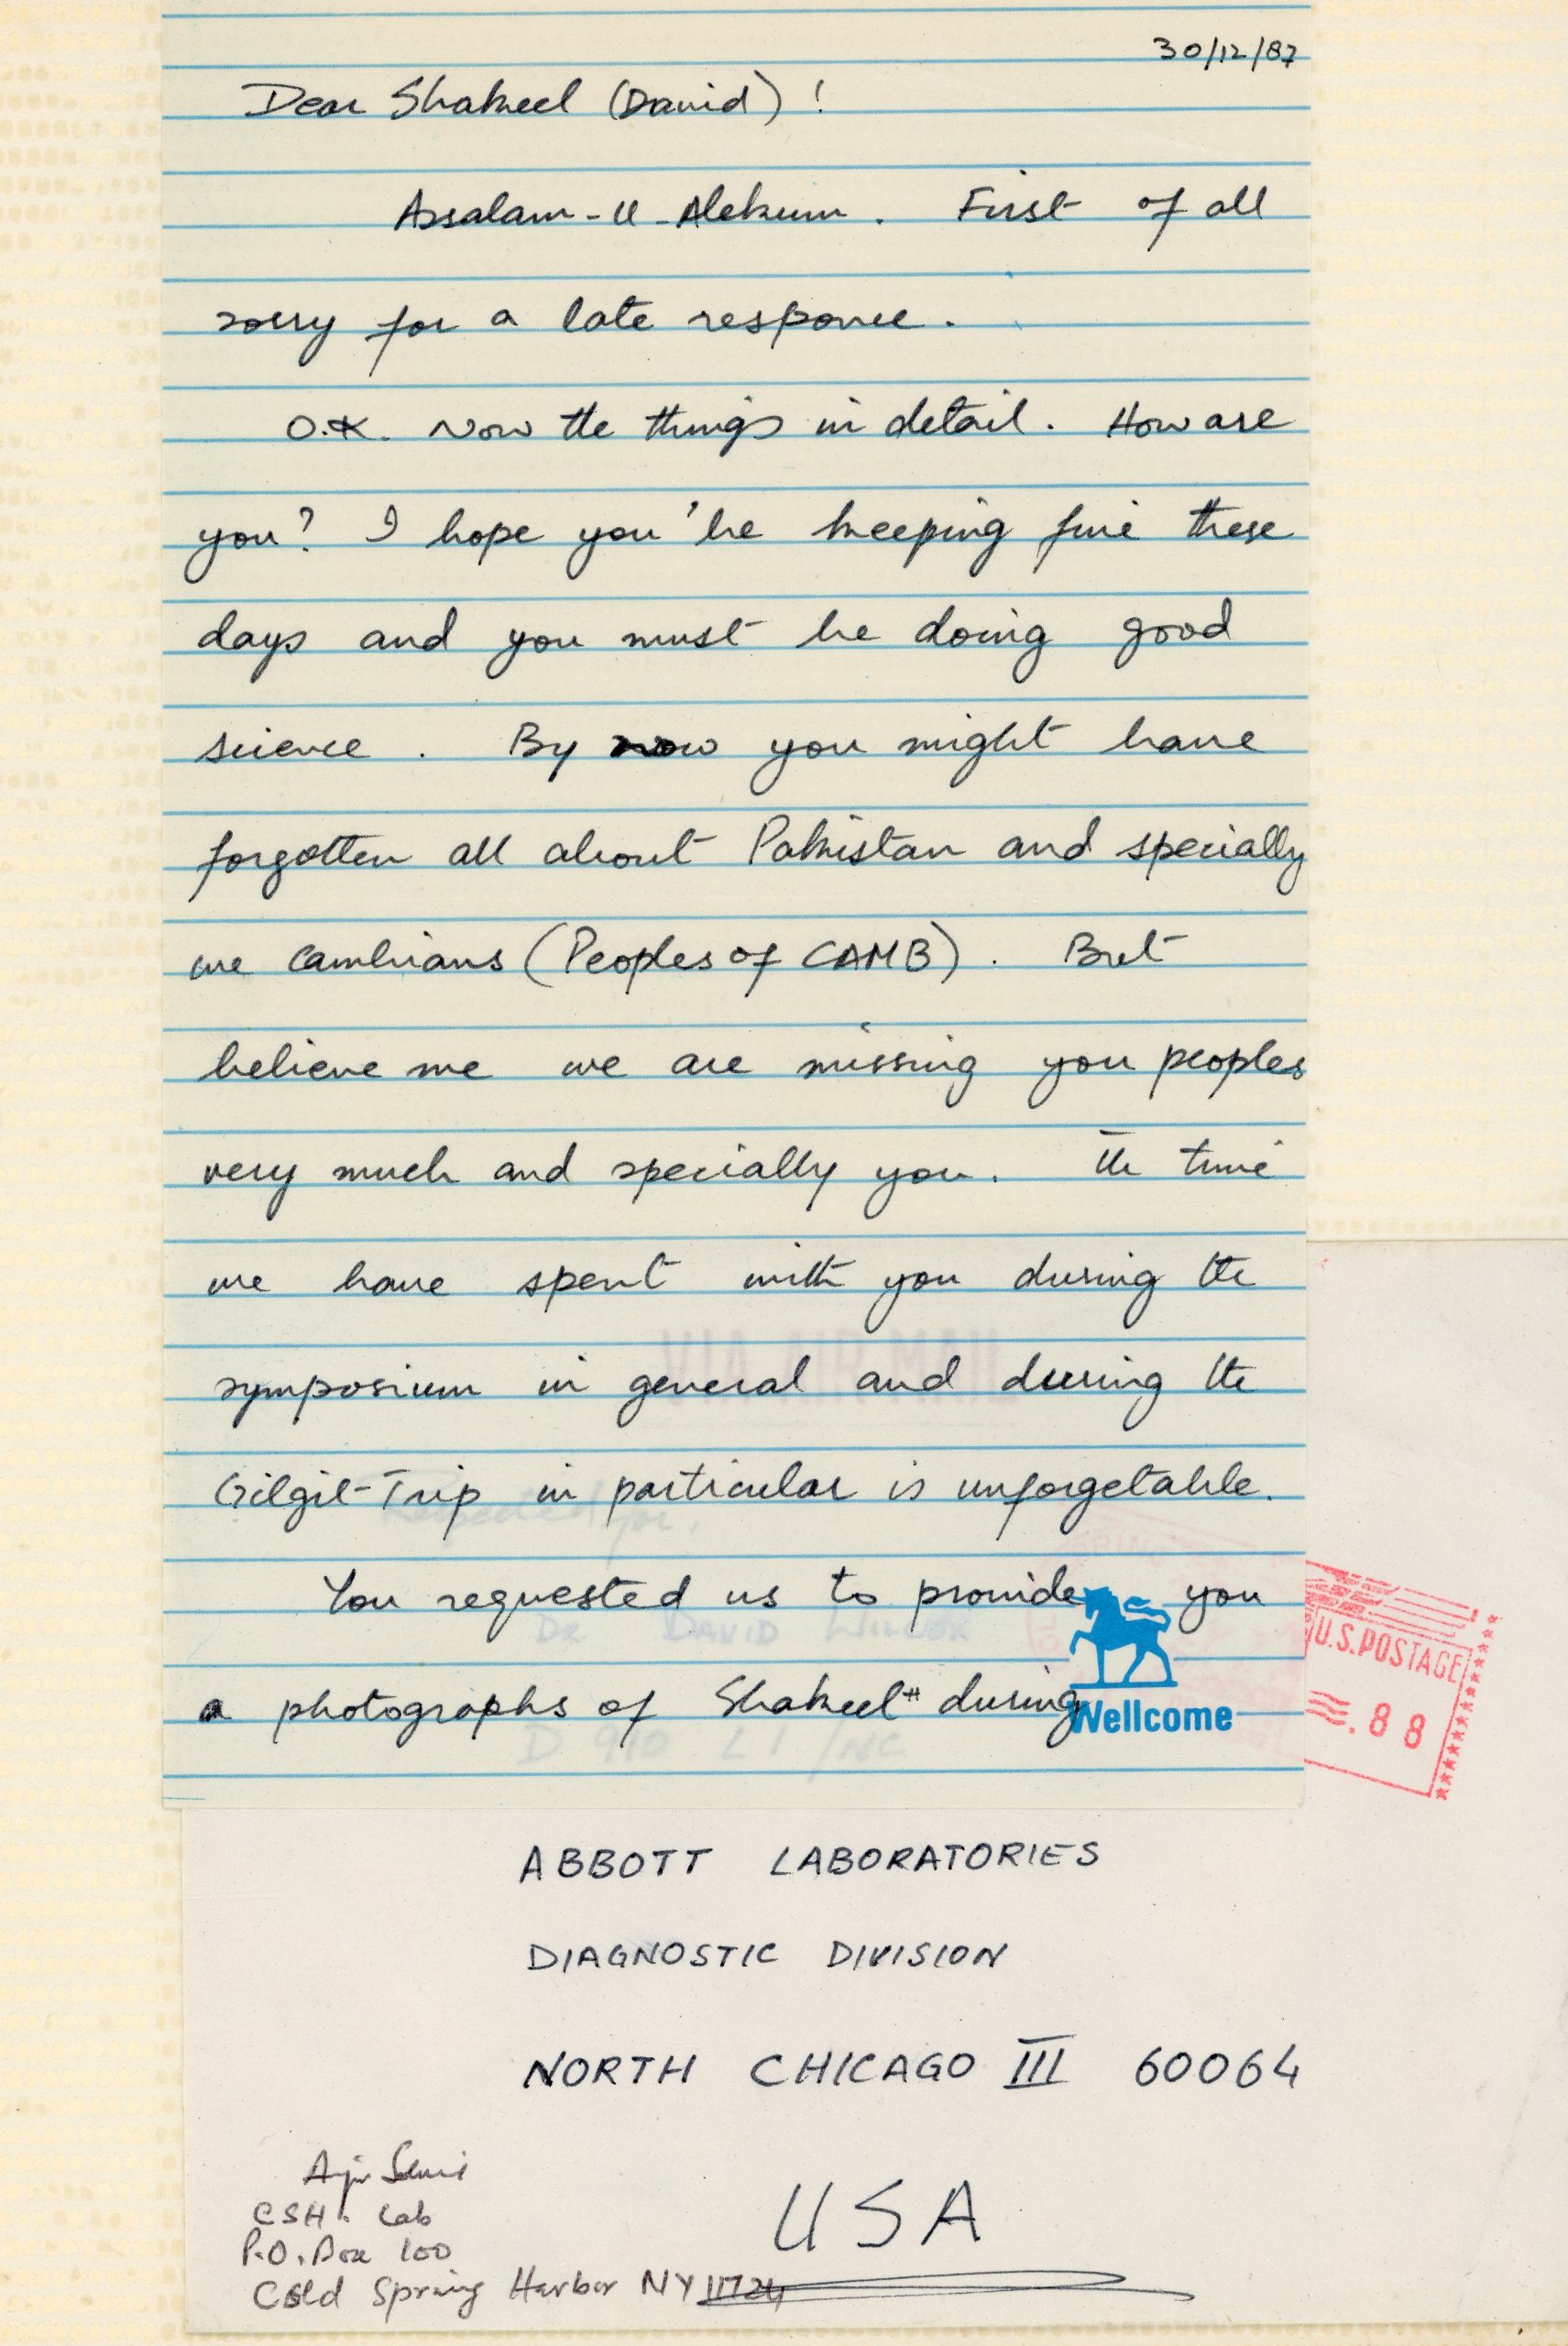 30/12/87
Dear Shakeel (David) !
Assalam-u-Alekum . First of all
sorry for a late responce .
O.K. Now the things in detail . How are
you? I hope you'be keeping fine these
days and you must be doing good
science . By now you might have
forgotten all about Pakistan and specially
we cambians (Peoples of CAMB) . But
believe me we are missing you peoples
very much and specially you . The time
we have spent with you during the
symposium in general and during the
Gilgit-Trip in particular is unforgetable.
You requested us to provide you
a photographs of Shakeel" during
Wellcome
VIA AIR MAIL
DR. DAVID WILCOX
D 910 L1 /NC
U.S.POSTAGE
.88
ABBOTT LABORATORIES
DIAGNOSTIC DIVISION
NORTH CHICAGO III 60064
USA
CSH. Lab
P.O. Box 100
Cold Spring Harbor NY 11724